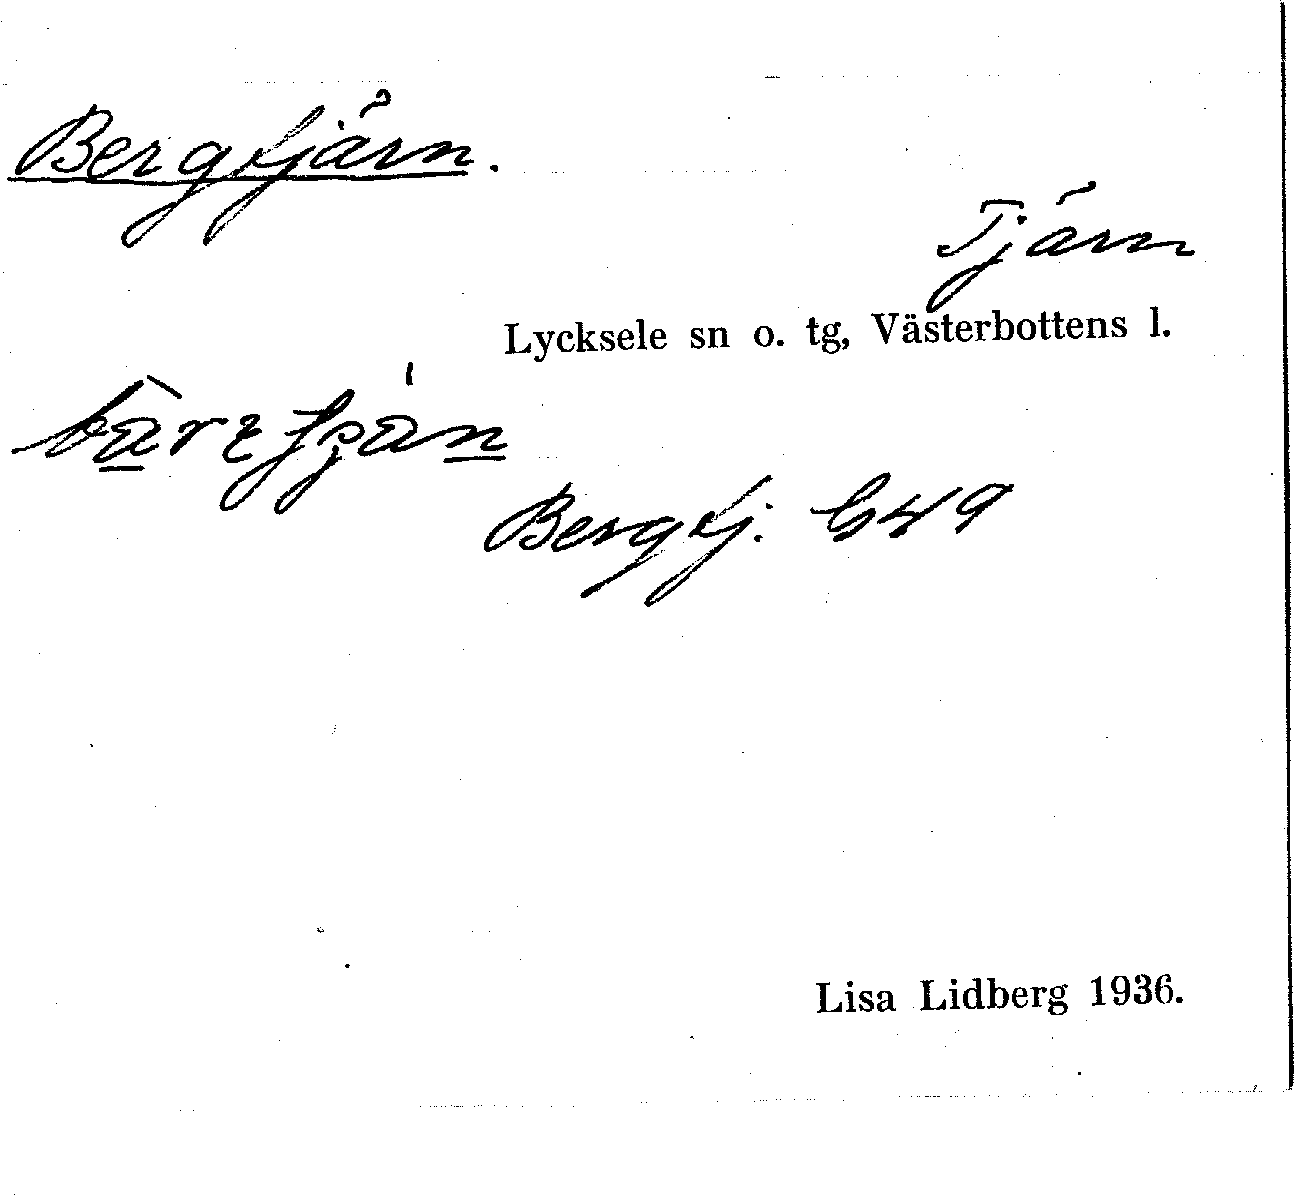 Bergtjärn.
Tjärn
Lycksele sn o. tg, Västerbottens l.
Bergtj. G49
Lisa Lidberg 1936.